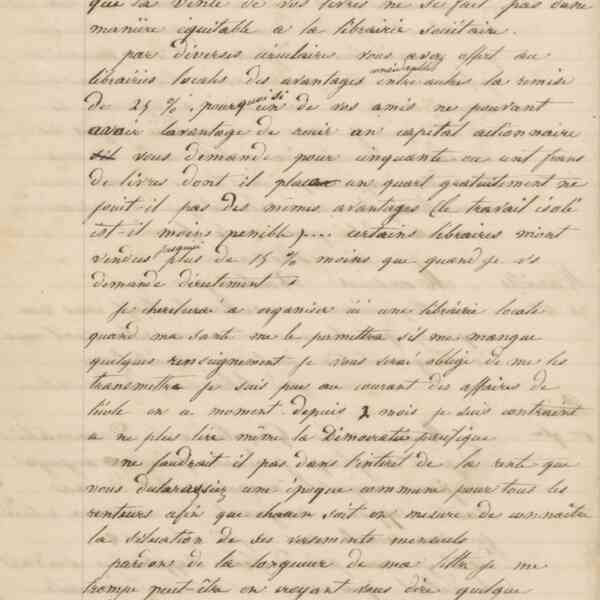 que la vente de vos livres ne se fait pas d'une
manière équitable a la librairie sociétaire.
par diverses circulaires vous avez offert au
librairies locals des avantages entre autres la remise
de 25 %. pourquoi si un de vos amis ne pouvant
avoir lavantage de reunir un capital actionnaire
vous demande pour cinquante ou cent francs
de livres dont il place un quart gratuitement ne
jouit-il pas des mêmes avantages (le travail isolé
est-il moins penible)... certains libraires m'ont
vendus jusqua plus de 15 % moins que quand je vs
demande directement
Je chercherai a organiser ici une librairie locale
quand ma santé me le permettra s'il me manque
quelques renseignement je vous serai obligé de me les
transmettre je suis peu au courant des affaires de
l'école en ce moment. depuis 2 mois je suis contraint
a ne plus lire même la Democratie pacifique
ne faudrait il pas dans l'interêt de la rente que
vous une époque commune pour tous les
renteurs afin que chacun soit en mesure de connaître
la situation de ses versements mensuels
pardon de la longueur de ma lettre je me
trompe peut-être en croyant vous dire quelque